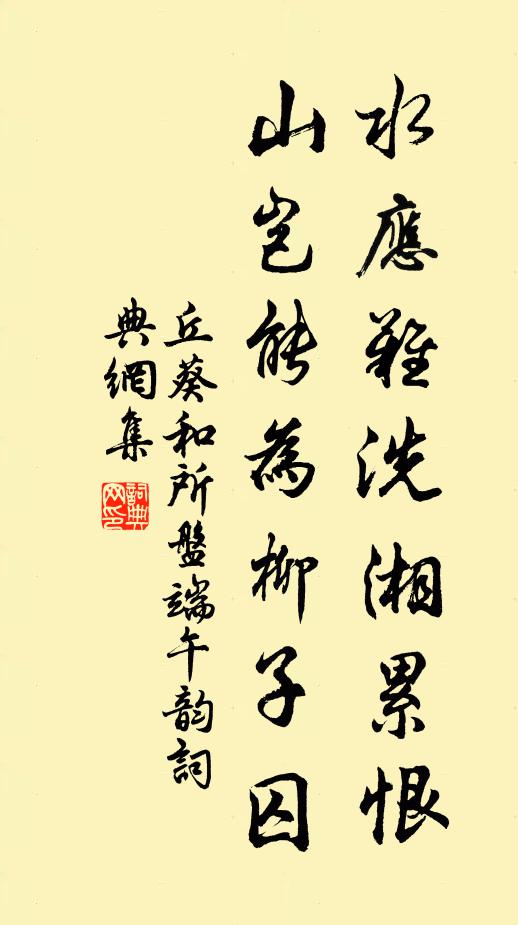 水應難洗湘累恨
山豈能為柳子囚
丘葵和所盤端午韵詞
典網集
詞典網印